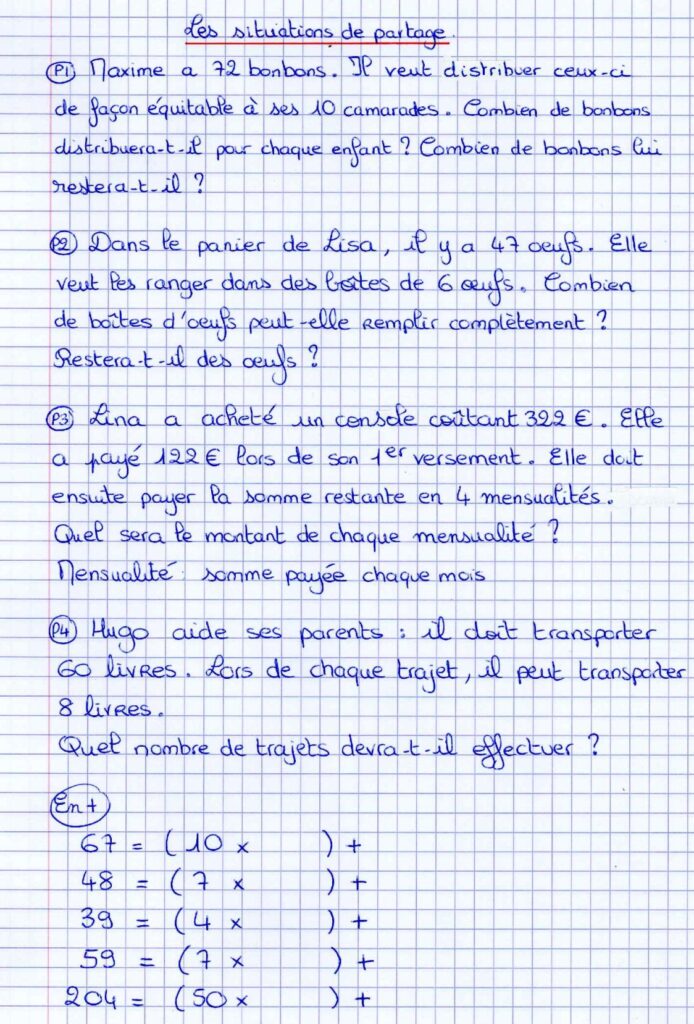 Les situations de partage.
P1 Maxime a 72 bonbons. Il veut distribuer ceux-ci
de façon équitable à ses 10 camarades. Combien de bonbons
distribuera-t-il pour chaque enfant ? Combien de bonbons lui
restera-t-il ?
P2 Dans le panier de Lisa, il y a 47 oeufs. Elle
veut les ranger dans des boîtes de 6 œufs. Combien
de boîtes d'oeufs peut-elle remplir complètement ?
Restera-t-il des œufs ?
P3 Lina a acheté un console coûtant 322 €. Elle
a payé 122 € lors de son 1er versement. Elle doit
ensuite payer la somme restante en 4 mensualités.
Quel sera le montant de chaque mensualité ?
Mensualité : somme payée chaque mois
P4 Hugo aide ses parents : il doit transporter
60 livres. Lors de chaque trajet, il peut transporter
8 livres.
Quel nombre de trajets devra-t-il effectuer ?
En +
67 = (10 x ) +
48 = (7 x ) +
39 = (4 x ) +
59 = (7 x ) +
204 = (50 x ) +